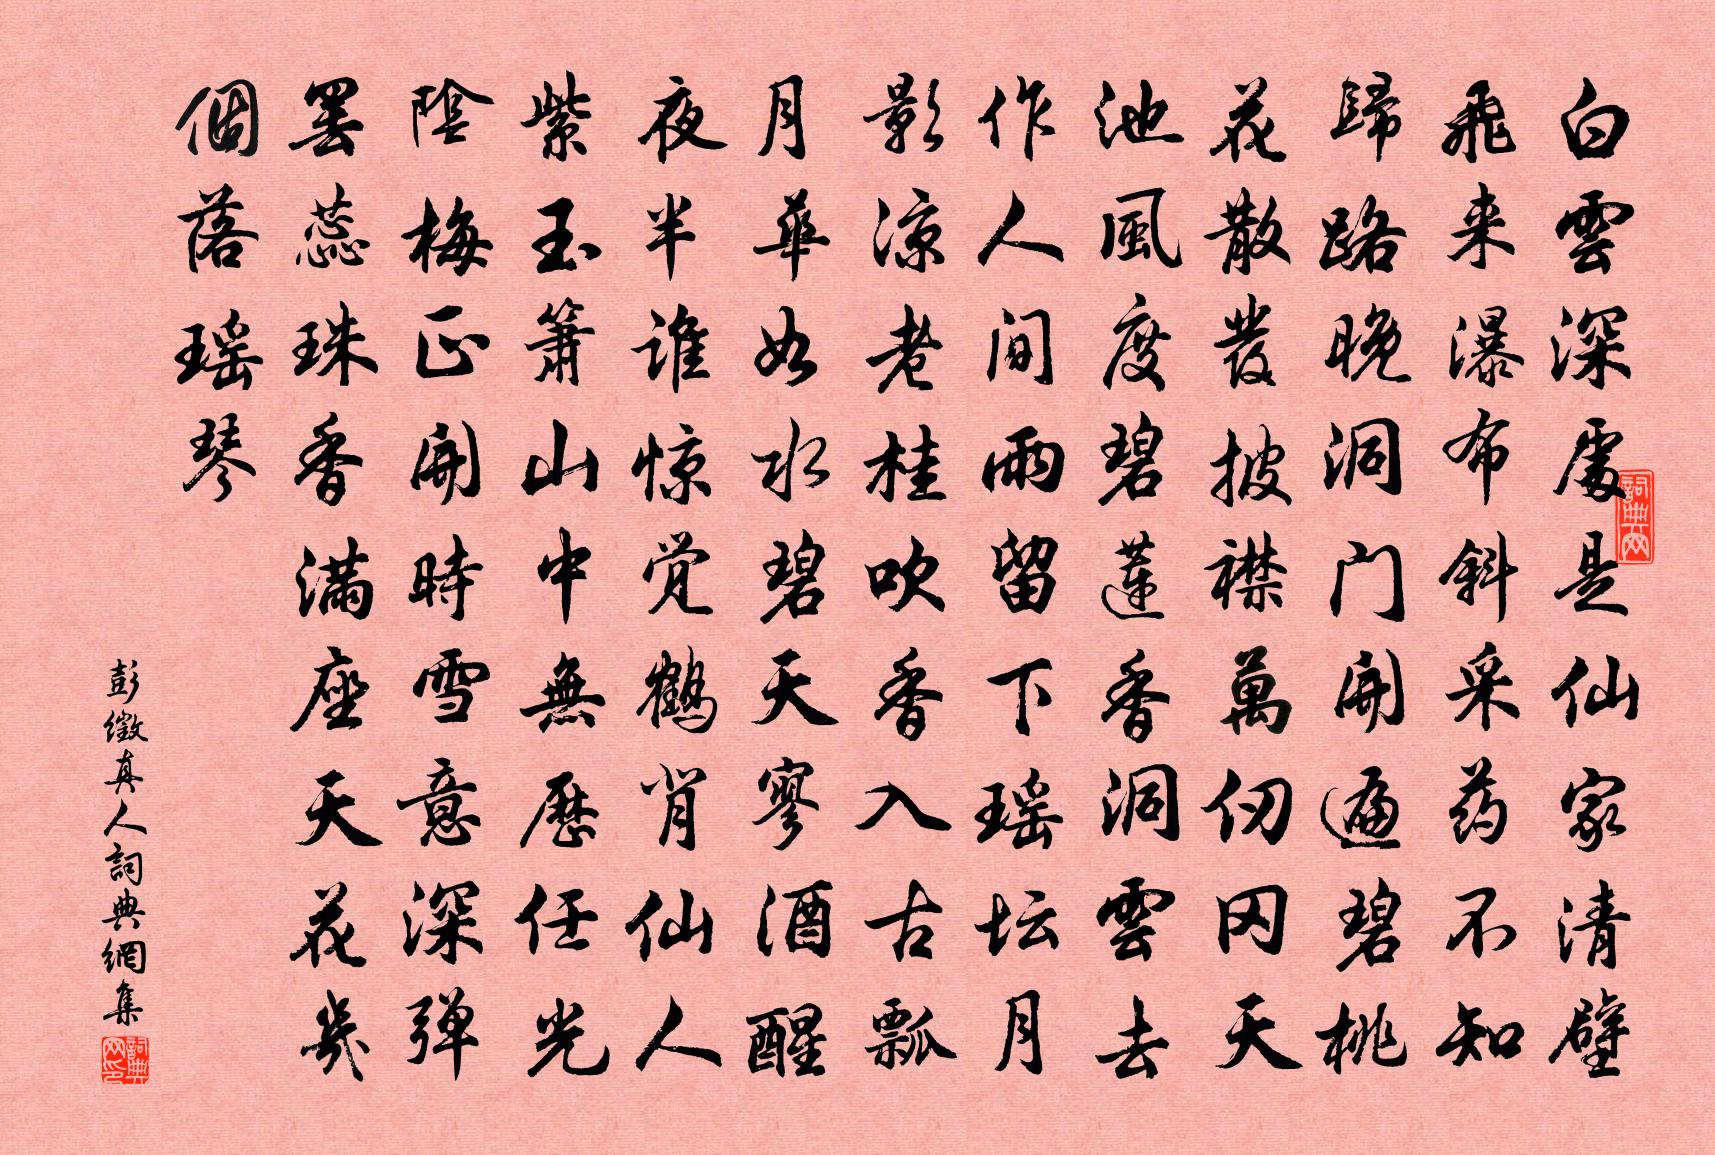 白雲深處是仙家清壁
飛来瀑布斜采药不知
歸路晚洞门開遍碧桃
花散發披襟萬仞冈天
池風度碧蓮香洞雲去
作人间雨留下瑶坛月
影凉老桂吹香入古瓢
月華如水碧天寥酒醒
夜半谁惊觉鹤背仙人
紫玉簫山中無歷任光
陰梅正開時雪意深弹
罢蕊珠香满座天花幾
個落瑶琴
彭徵真人詞典網集
詞典网
詞典网印